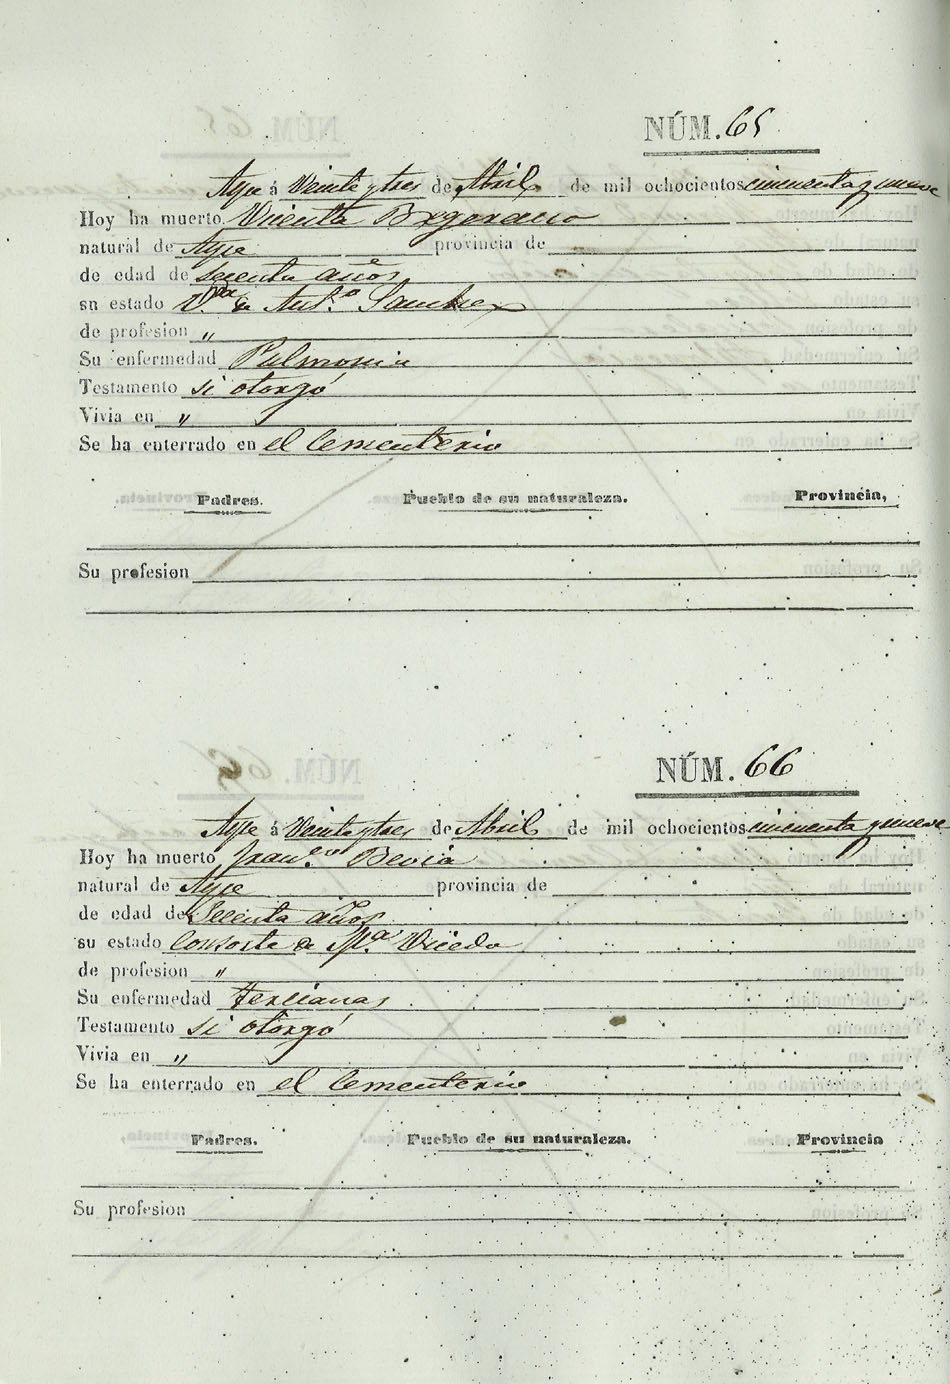 NÚM. 65
Aspe á Veinte y tres de Abril de mil ochocientos cincuenta y nueve
Hoy ha muerto Vicenta
natural de Aspe provincia de
de edad de años
su estado V.da de Ant.o Sanchez
de profesion "
Su enfermedad Pulmonia
Testamento si otorgó
Vivia en "
Se ha enterrado en el Cementerio
Padres. Pueblo de su naturaleza. Provincia,
Su profesion
NÚM. 66
Aspe á Veinte y tres de Abril de mil ochocientos cincuenta y nueve
Hoy ha muerto Fran.co Bevia
natural de Aspe provincia de
de edad de años
su estado Consorte de M.a
de profesion "
Su enfermedad tercianas
Testamento si otorgó
Vivia en "
Se ha enterrado en el Cementerio
Padres. Pueblo de su naturaleza. Provincia
Su profesion